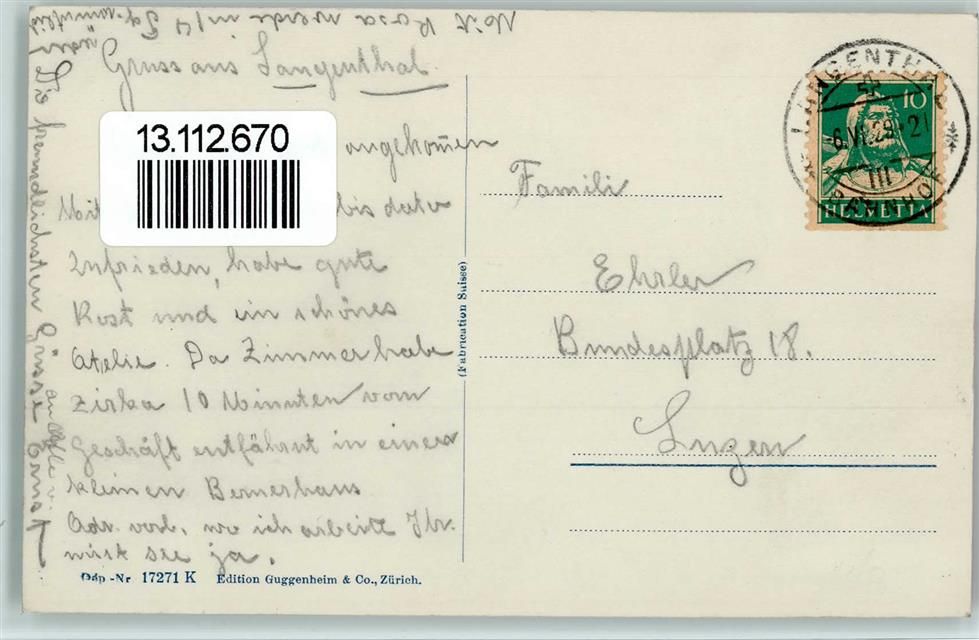 Mit Rosa werde in 14
Gruss aus Langenthal.
13.112.670
angekomen
Mit bis dato
Zufrieden, habe gute
Kost und ein schönes
Atelie. Da Zimmer habe
zirka 10 Minuten vom
Geschäft entfährnt in einer
kleinen Bernerhaus
Adr. vorl. wo ich arbeite Ihr
wisst see ja.
Die freundlichsten Grüsse
an alle v.
Ernst
Däp -Nr 17271 K Edition Guggenheim & Co., Zürich.
(Fabrication Suisse)
LANGENTHAL
6.VI.29-21
III
BAHNHOF
10
HELVETIA
Famili
Ehrler
Bundesplatz 18.
Luzern